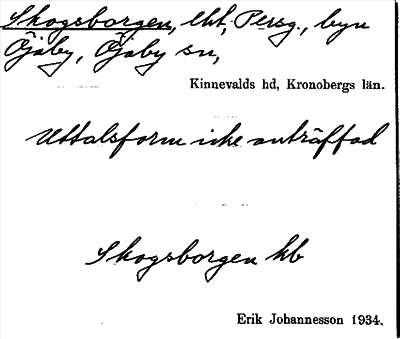 Skogsborgen, lht, Persg., byn
Öjaby, Öjaby sn,
Kinnevalds hd, Kronobergs län.
Uttalsform icke anträffad
Skogsborgen kb
Erik Johannesson 1934.